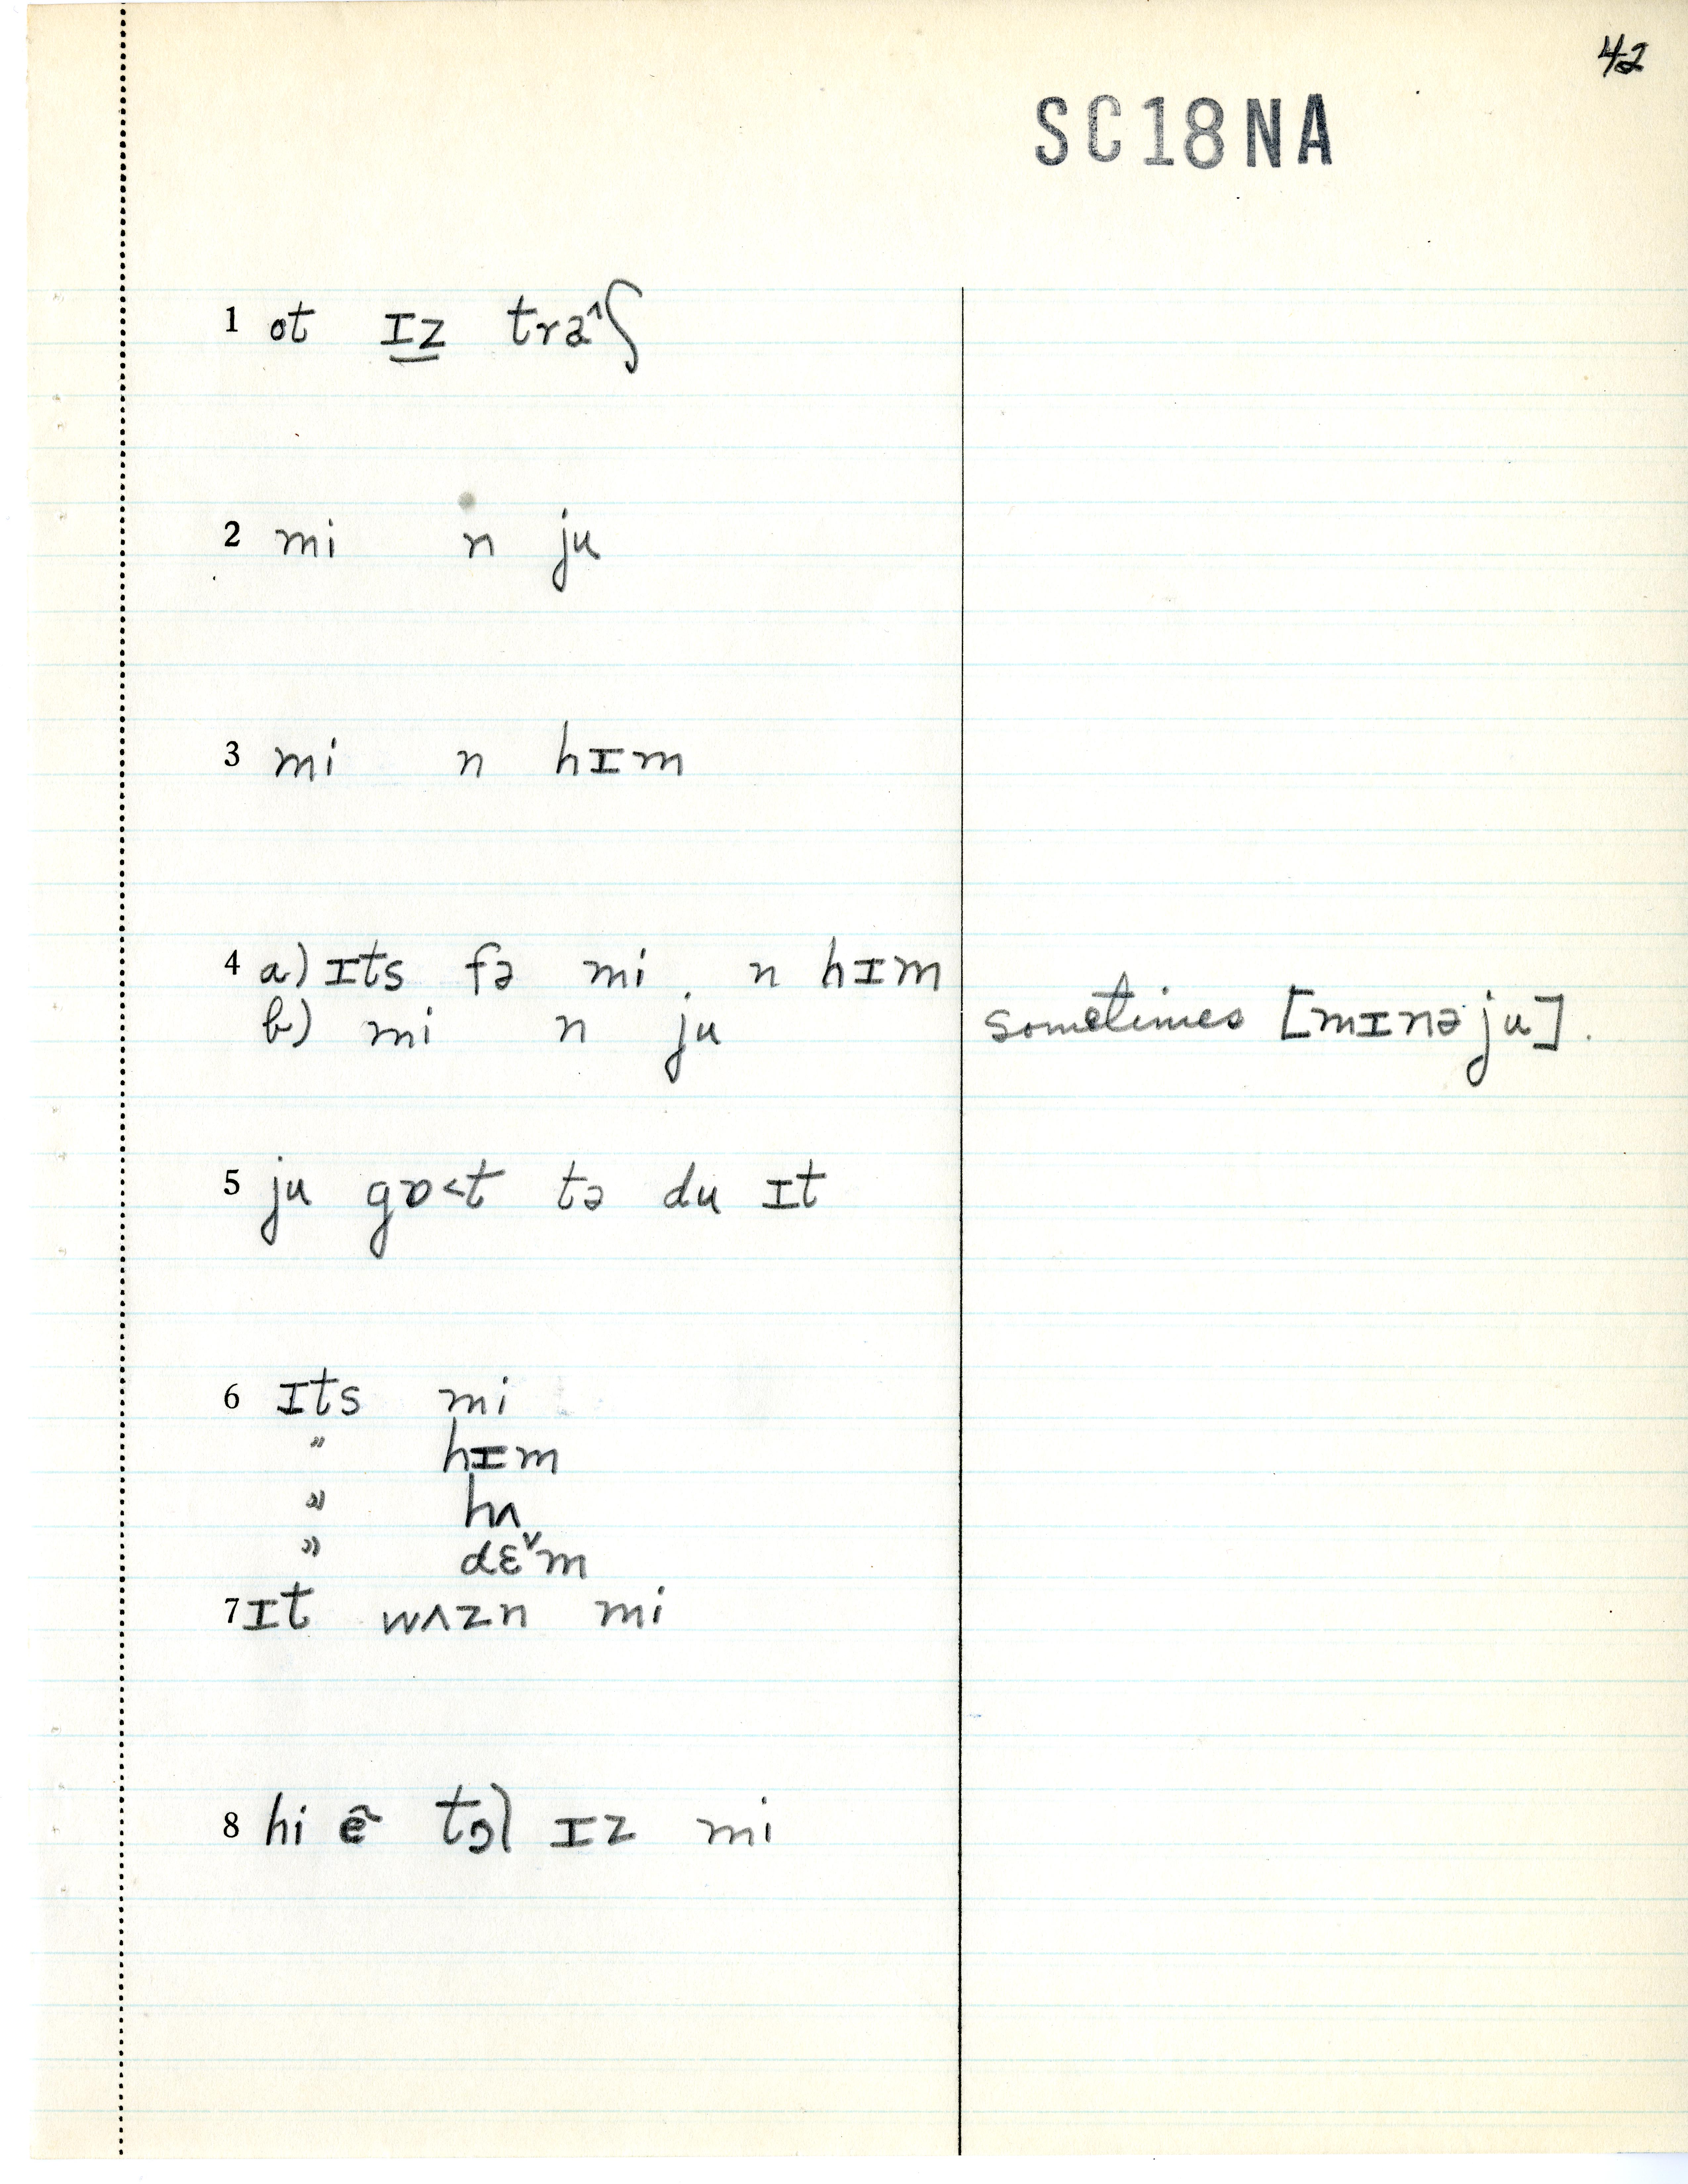 42
SC18NA
1 ot ɪz traˆʃ
2 mi n ju
3 mi n hɪm
4 a) ɪts fə mi n hɪm
b) mi n ju sometimes [mɪnəju].
5 ju gɒ<t tə du ɪt
6 ɪts mi
" hɪm
" hʌ
" dɛˇm
7 ɪt wʌzn mi
8 hi tɔl ɪz mi